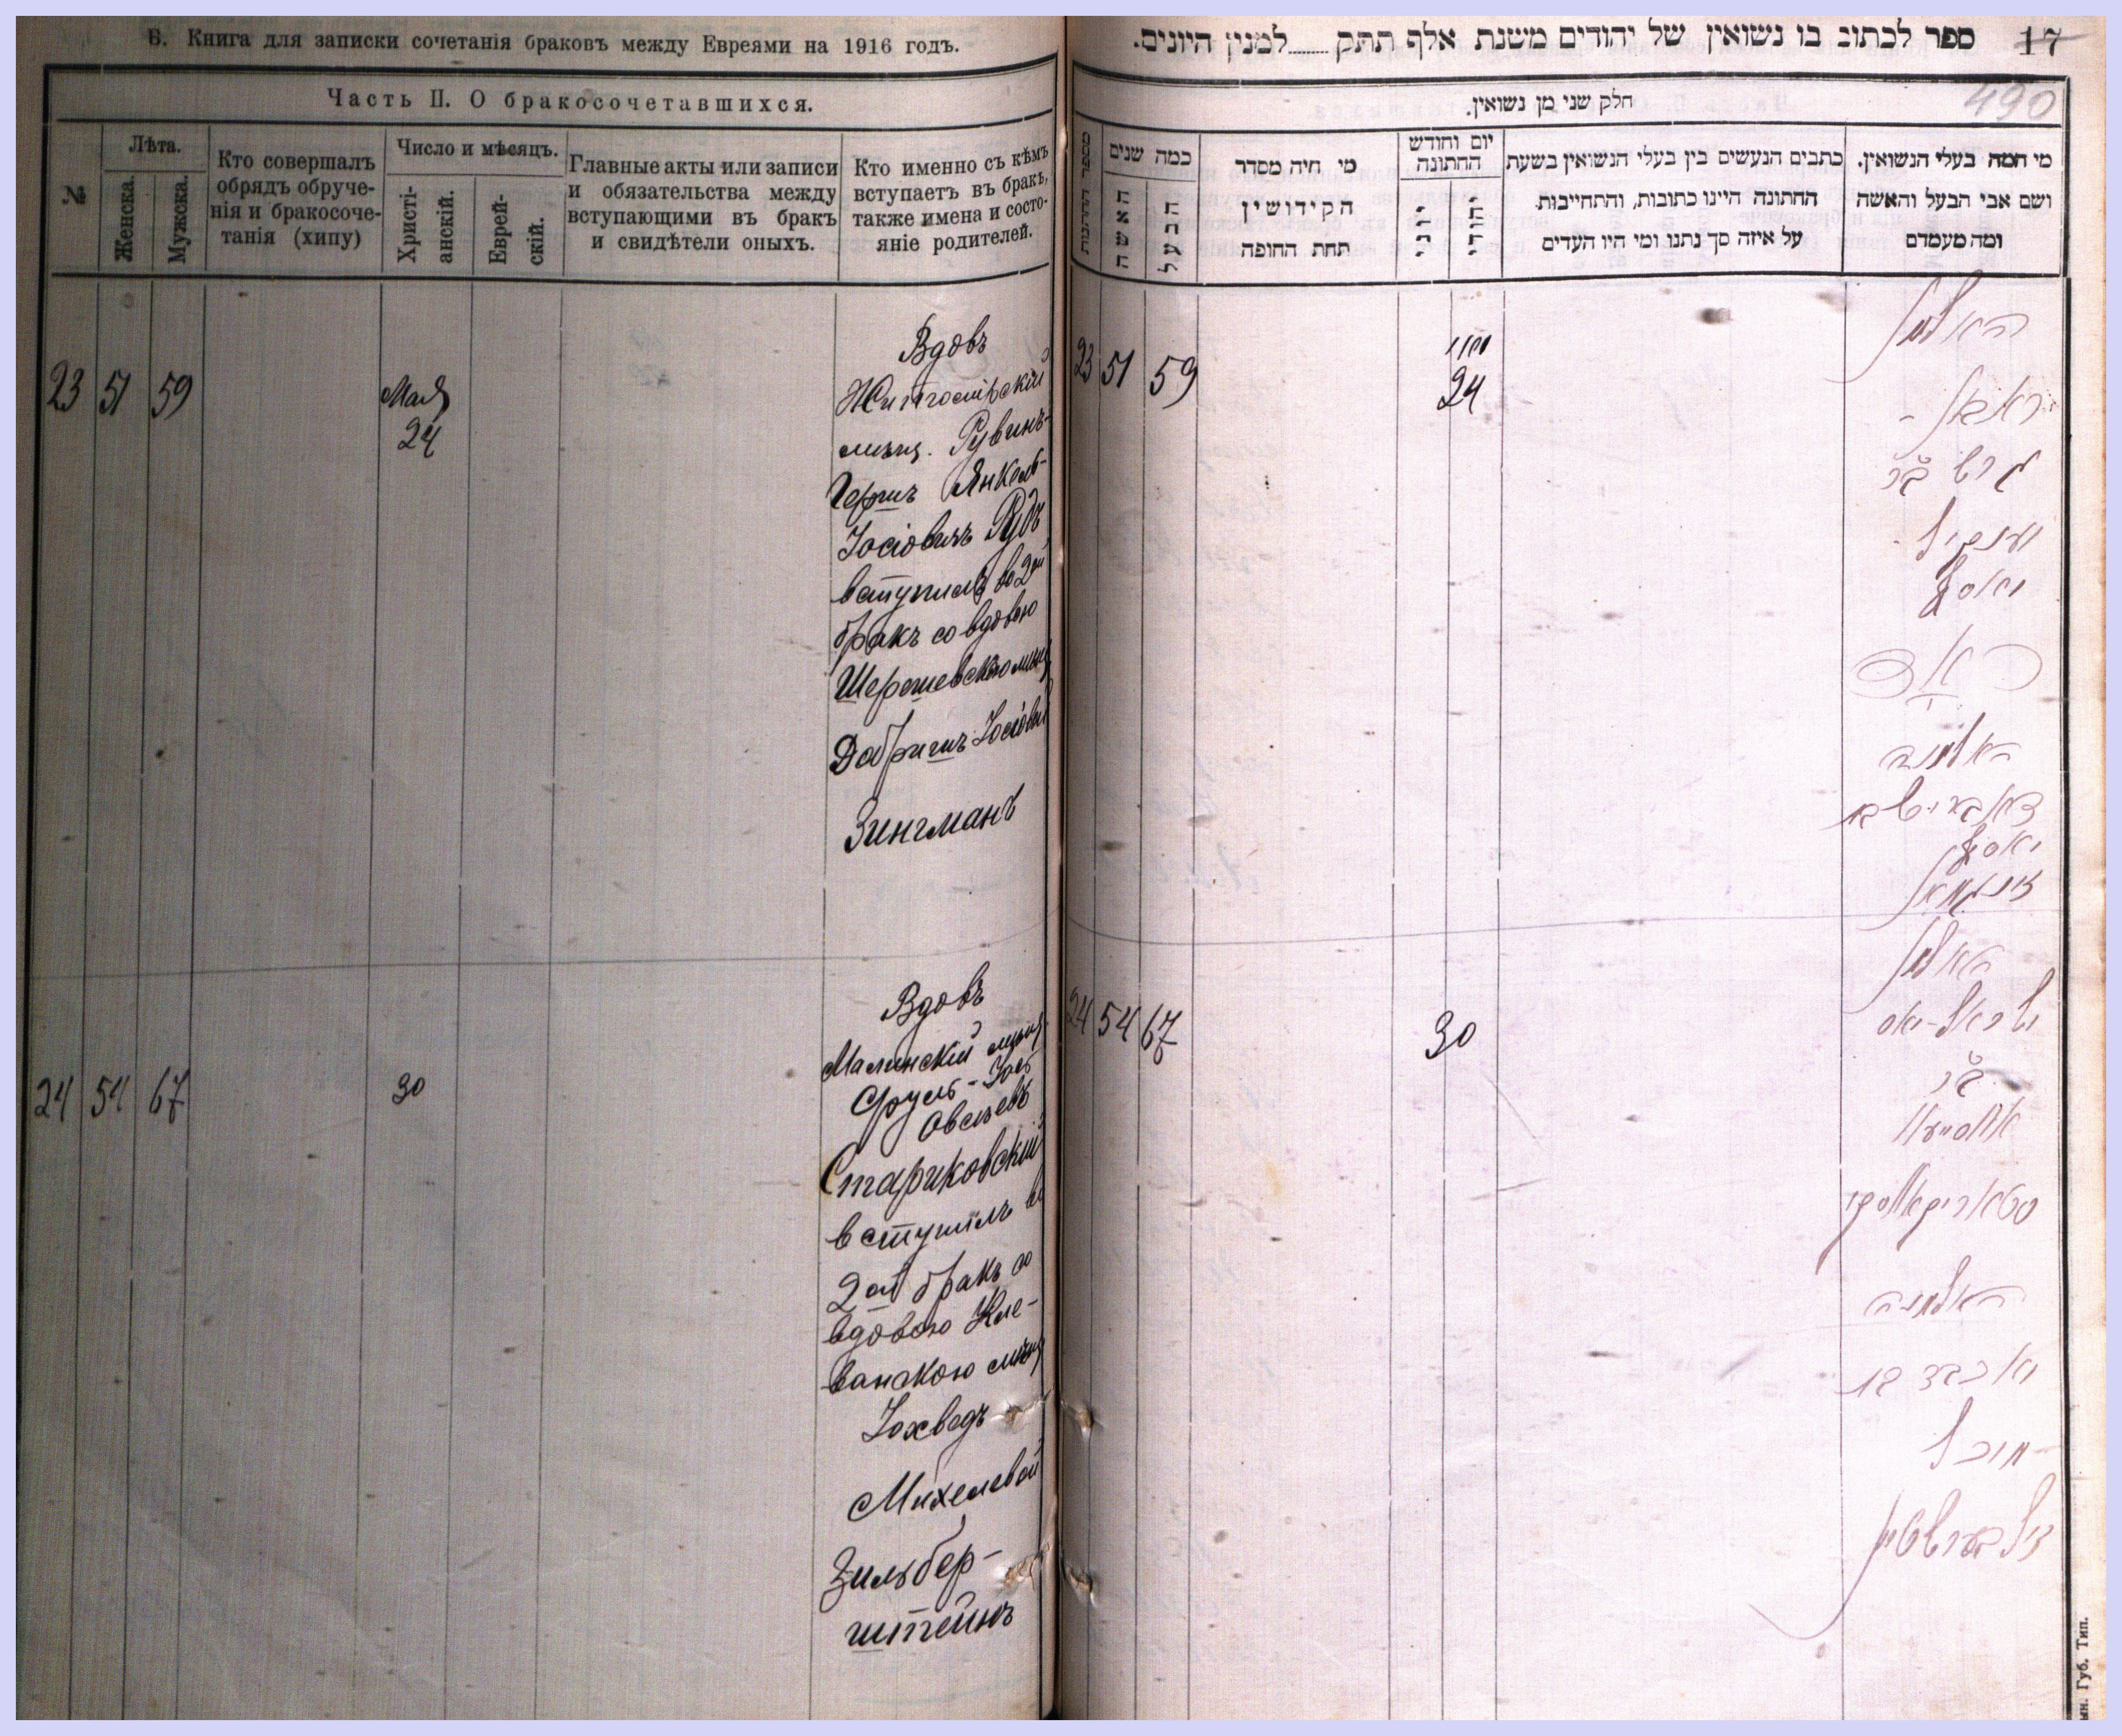 В. Книга для записки сочетанія браковъ между Евреями на 1916 годъ.
Часть II. О бракосочетавшихся.
№
Лѣта.
Женска.
Мужска.
Кто совершалъ
обрядъ обруче-
нія и бракосоче-
танія (хипу)
Число и мѣсяцъ.
Христі-
анскій.
Еврей-
скій.
Главные акты или записи
и обязательства между
вступающими въ бракъ
и свидѣтели оныхъ.
Кто именно съ кѣмъ
вступаетъ въ бракъ,
также имена и состо-
яніе родителей.
23 51 59
Мая
24
Вдовъ
Житомірскій
мѣщ. Рувинъ-
Гершъ Янкель-
Іосіовичъ Рудъ
вступилъ во 2ой
бракъ со вдовою
Шерешевскою мѣщ
Добришъ Іосіовой
Зингманъ
24 54 67
30
Вдовъ
Малинскій мѣщ
Сруль-Іось
Овсѣевъ
Стариковскій
вступилъ во
2ой бракъ со
вдовою Кле-
ванскою мѣщ
Іохведъ
Михелевой
Зильбер-
штейнъ
ספר לכתוב בו נשואין של יהודים משנת אלף תתק........למנין היונים.
17
490
חלק שני מן נשואין.
כמה שנים
האשה
הבעל
מי היה מסדר
הקידושין
תחת החופה
יום וחודש
החתונה
יוני
יהודי
כתבים הנעשים בין בעלי הנשואין בשעת
החתונה היינו כתובות, והתחייבות
על איזה סך נתנו ומי היו העדים
מי המה בעלי הנשואין.
ושם אבי הבעל והאשה
ומה מעמדם
23 51 59
24
האלמן
ראבין-
הירש ב"ר
יאנקיל-
יאסף
ראד
האלמנה
דאברישבת
יאסף
זינגמאן
24 54 67
30
האלמן
ישראל-יאס
ב"ר
אווסייעא
סטאריקאווסקי
האלמנה
יאכבד בת
מיכל
זילבערשטיין
ын. Губ. Тип.